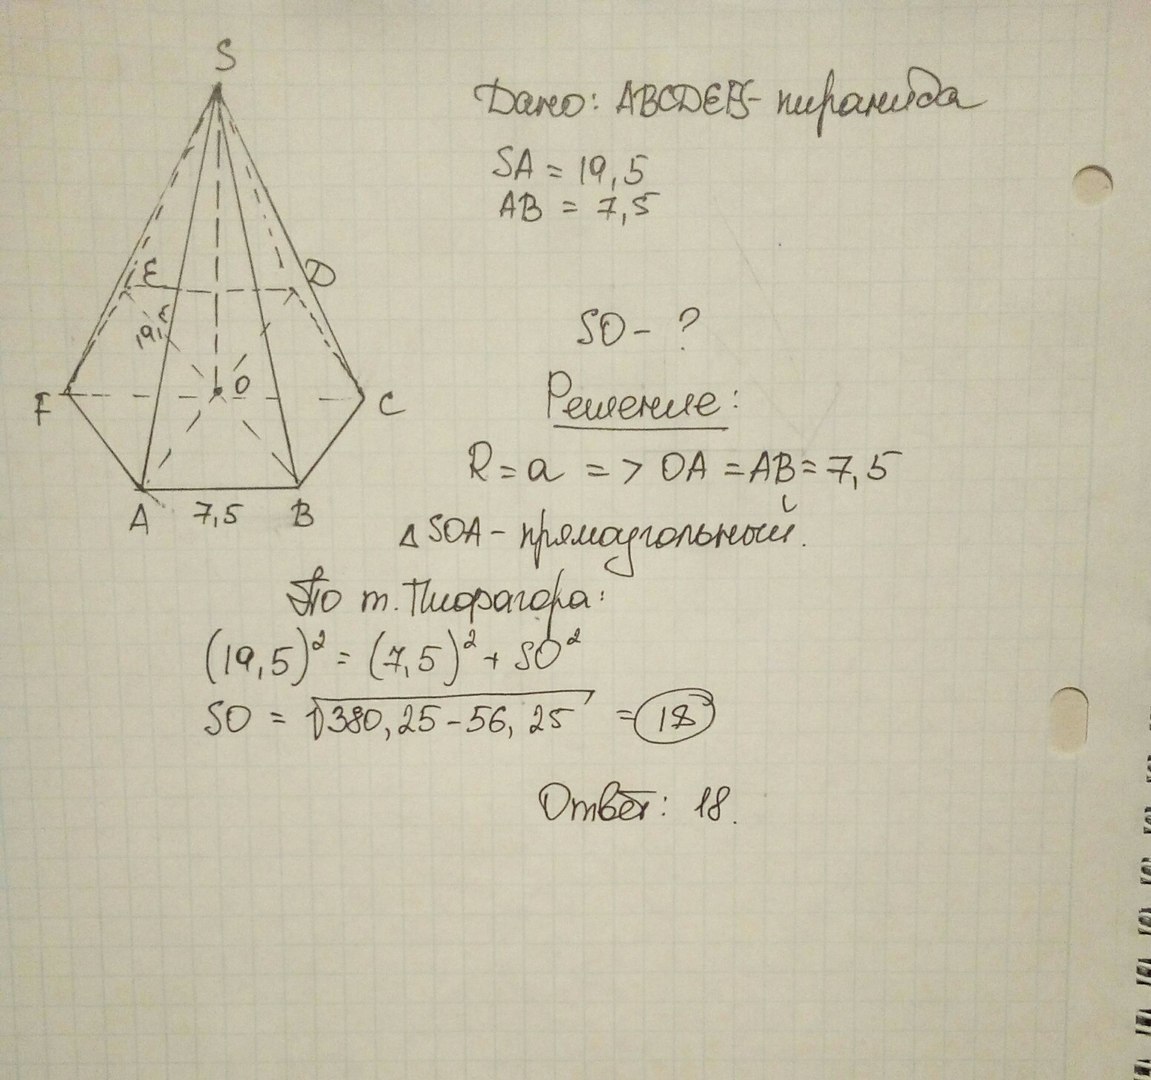 S
Дано: ABCDEFS- пирамида
SA = 19,5
AB = 7,5
E
D
19,5
SO - ?
F
O
C
Решение:
R = a => OA = AB = 7,5
A
7,5
B
Δ SOA - прямоугольный.
По т. Пифагора:
(19,5)² = (7,5)² + SO²
SO = √380,25 - 56,25 = 18
Ответ: 18.